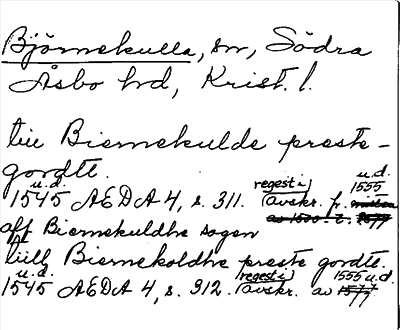 Björnekulla, sn, Södra
Åsbo hrd, Krist. l.
tiil Biernekulde preste-
gordtt.
u.d. regest i u.d.
1545 AEDA 4, s. 311. (avskr. fr. 1555
av 1500-t. 1577
aff Biernekuldhe sogen
tiill Biernekoldhe preste gordtt.
u.d. regest i 1555 u.d.
1545 AEDA 4, s. 312. (avskr. av 1577